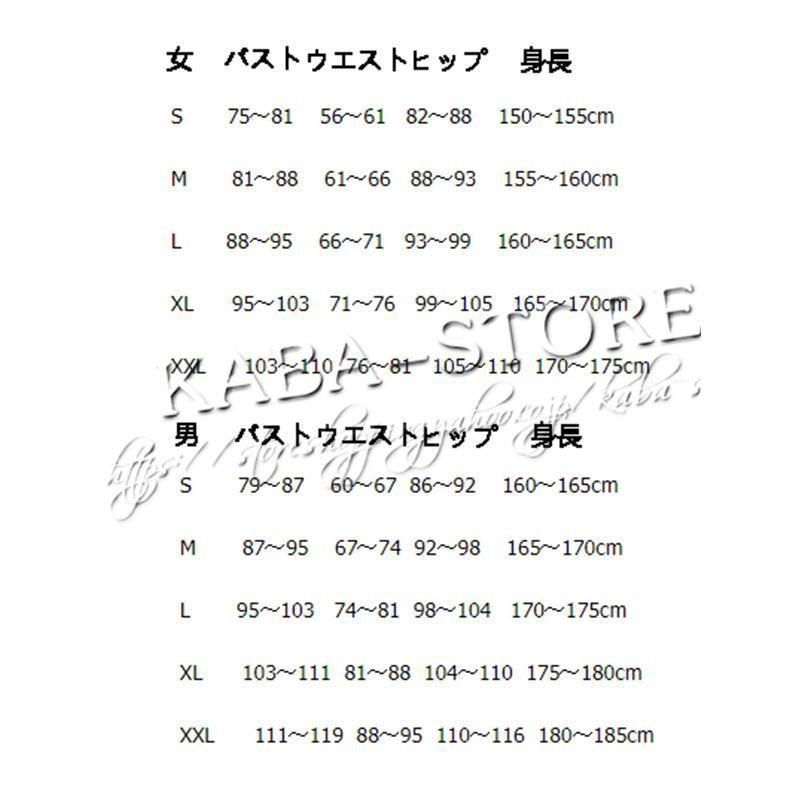 女 バスト ウエスト ヒップ 身長
S 75～81 56～61 82～88 150～155cm
M 81～88 61～66 88～93 155～160cm
L 88～95 66～71 93～99 160～165cm
XL 95～103 71～76 99～105 165～170cm
XXL 103～110 76～81 105～110 170～175cm
KABA-STORE
男 バスト ウエスト ヒップ 身長
S 79～87 60～67 86～92 160～165cm
M 87～95 67～74 92～98 165～170cm
L 95～103 74～81 98～104 170～175cm
XL 103～111 81～88 104～110 175～180cm
XXL 111～119 88～95 110～116 180～185cm